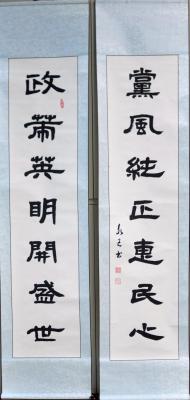 黨風純正惠民心
政策英明開盛世